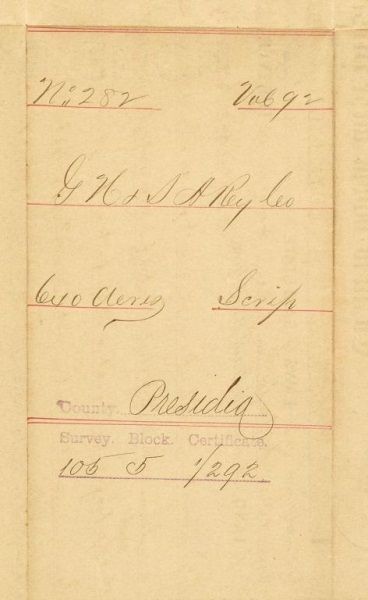 No 282 Vol 92
G H & S A Ry Co
640 Acres Scrip
County. Presidio
Survey. Block. Certificate.
105 5 1/292